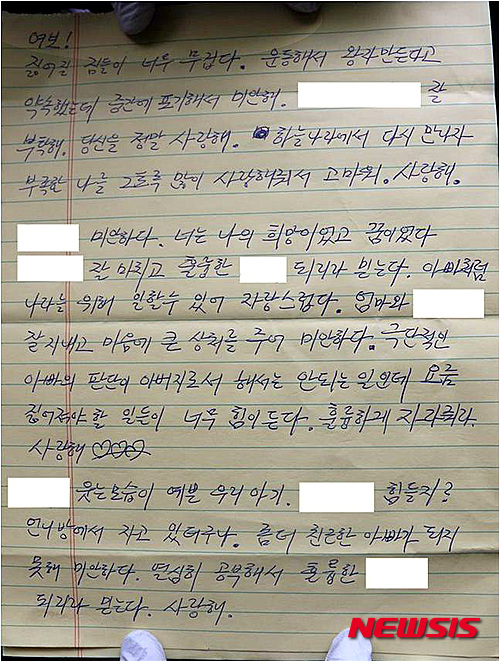 여보!
짊어질 짐들이 너무 무겁다. 운동해서 왕자만든다고
약속했는데 중간에 포기해서 미안해. 잘
부탁해. 당신을 정말 사랑해. 하늘나라에서 다시 만나자
부족한 나를 그토록 많이 사랑해줘서 고마워. 사랑해.
미안하다. 너는 나의 희망이었고 꿈이었다
잘 마치고 훌륭한 되리라 믿는다. 아빠처럼
나라를 위해 일할수 있어 자랑스럽다. 엄마와
잘 지내고 마음에 큰 상처를 주어 미안하다. 극단적인
아빠의 판단이 아버지로서 해서는 안되는 일인데 요즘
짊어져야 할 일들이 너무 힘이 든다. 훌륭하게 자라줘라.
사랑해 ♡♡♡
웃는모습이 예쁜 우리아기. 힘들지?
언니방에서 자고 있더구나. 좀더 친근한 아빠가 되지
못해 미안하다. 열심히 공부해서 훌륭한
되리라 믿는다. 사랑해.
NEWSIS